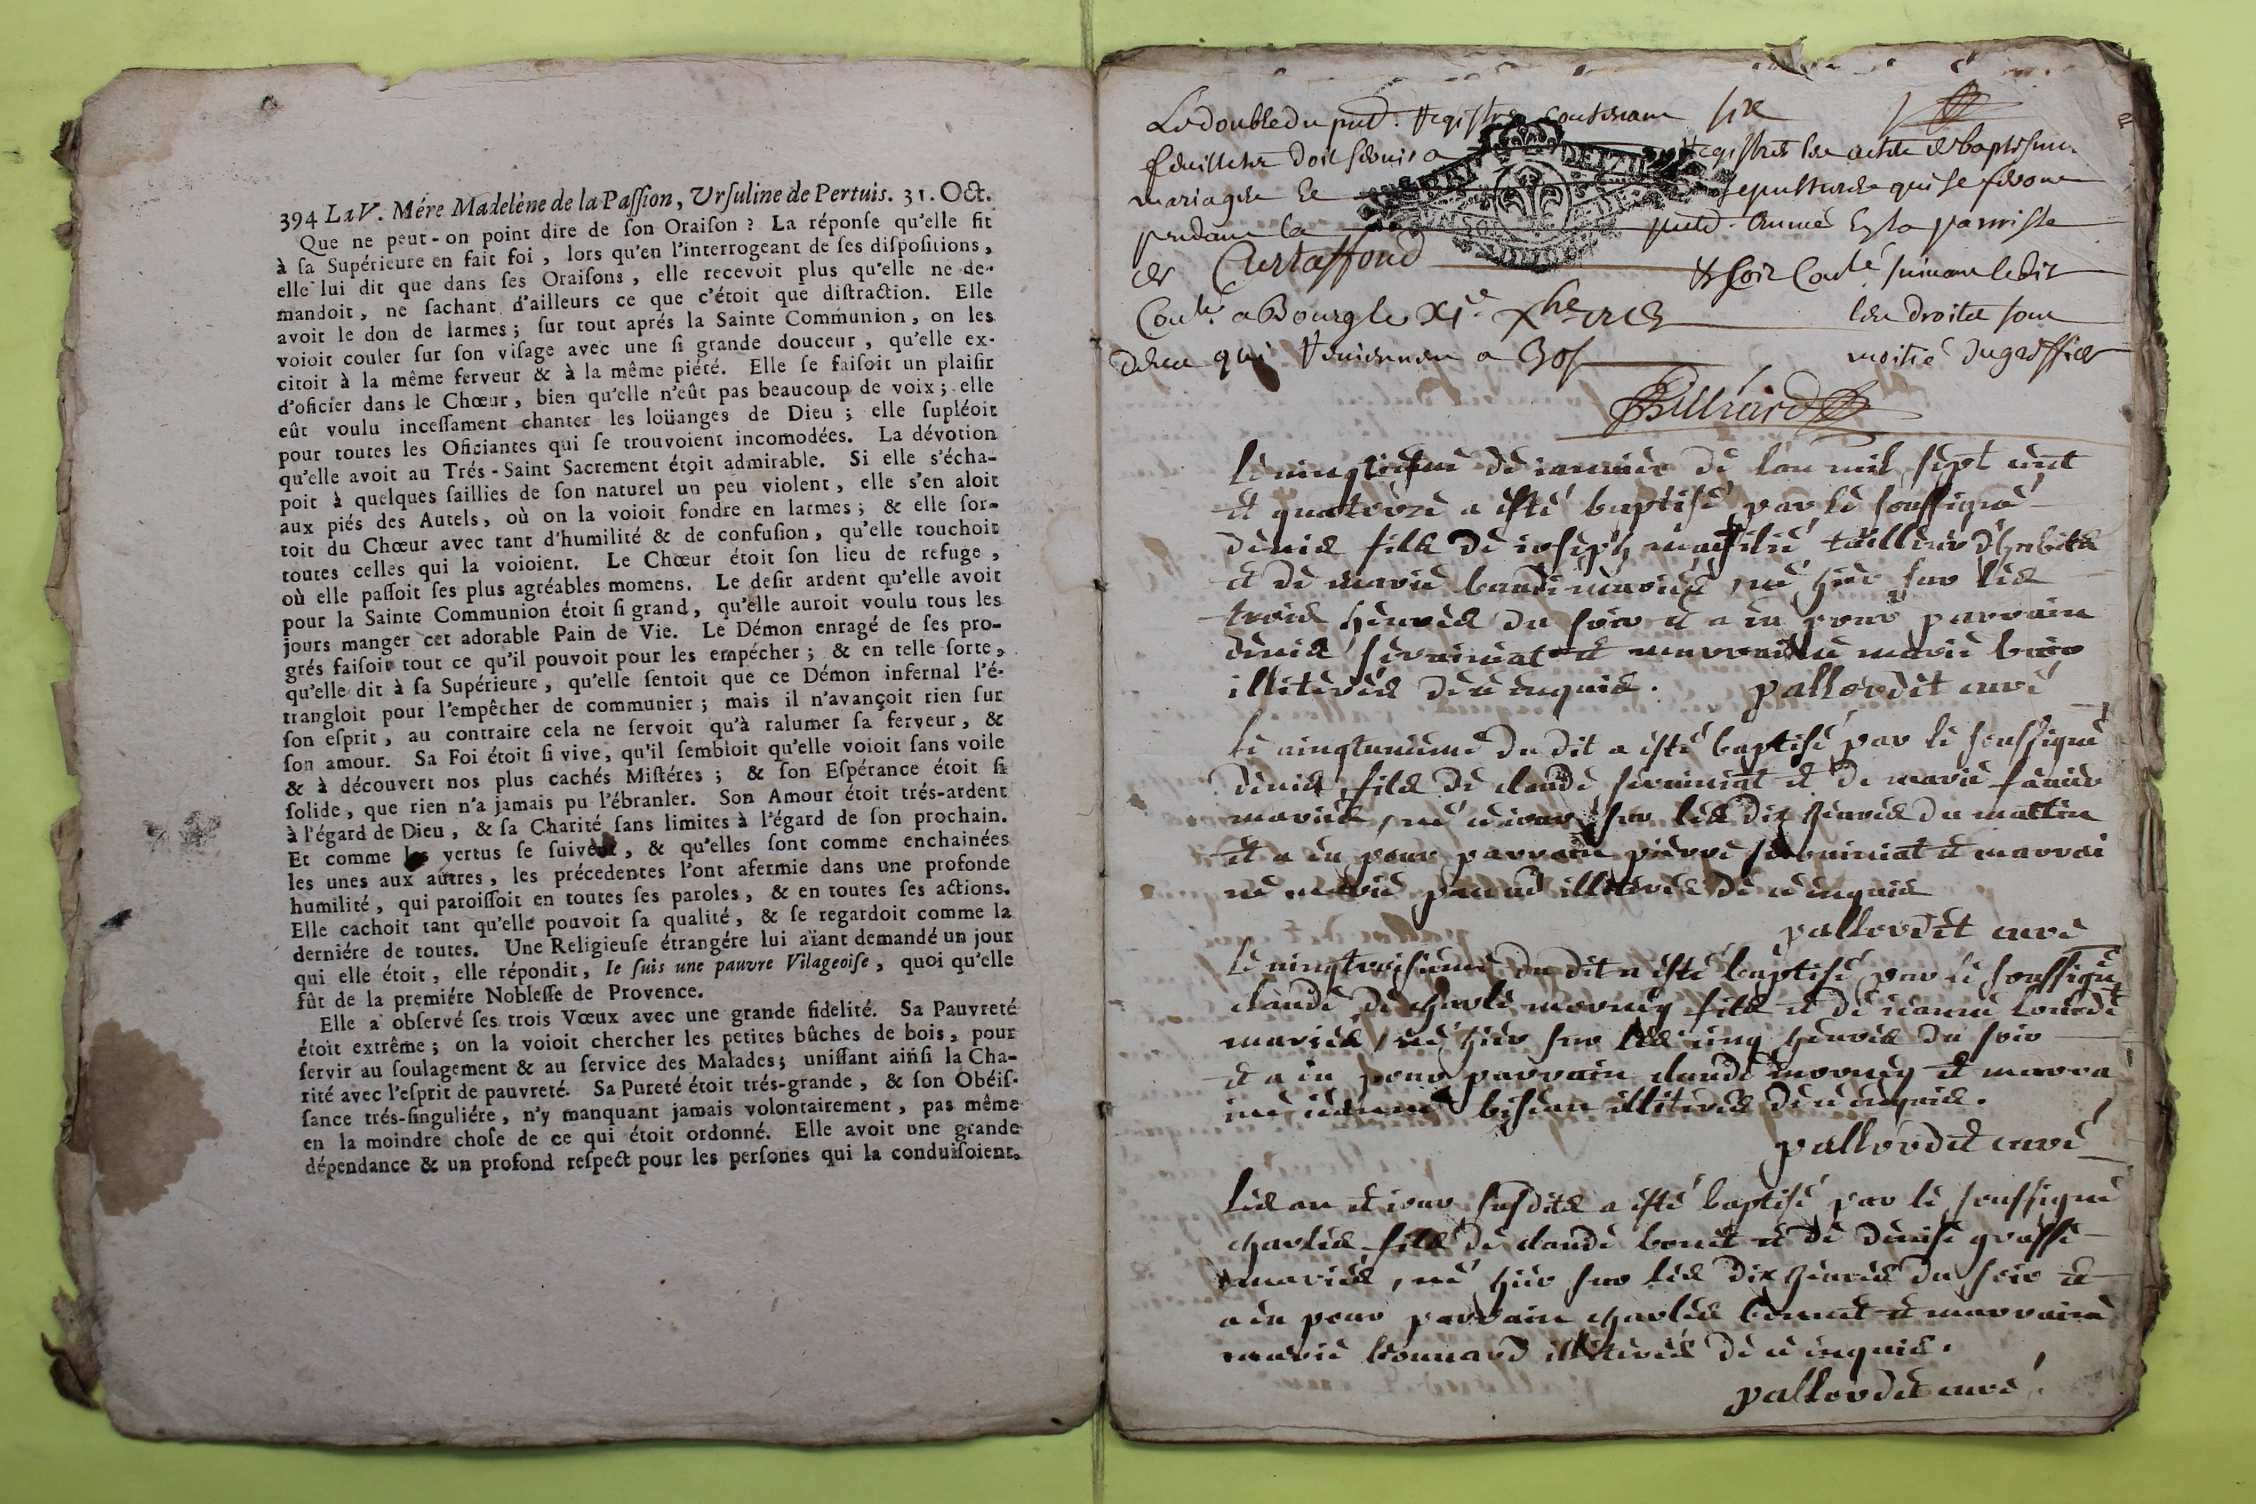 394 La V. Mére Madelène de la Paſſion, Vrſuline de Pertuis. 31. Oct.
Que ne peut-on point dire de ſon Oraiſon ? La réponſe qu'elle fit
à ſa Supérieure en fait foi, lors qu'en l'interrogeant de ſes diſpoſitions,
elle lui dit que dans ſes Oraiſons, elle recevoit plus qu'elle ne de-
mandoit, ne ſachant d'ailleurs ce que c'étoit que diſtraction. Elle
avoit le don de larmes; ſur tout aprés la Sainte Communion, on les
voioit couler ſur ſon viſage avec une ſi grande douceur, qu'elle ex-
citoit à la même ferveur & à la même piété. Elle ſe faiſoit un plaiſir
d'oficier dans le Chœur, bien qu'elle n'eût pas beaucoup de voix; elle
eût voulu inceſſament chanter les loüanges de Dieu; elle ſupléoit
pour toutes les Oficiantes qui ſe trouvoient incomodées. La dévotion
qu'elle avoit au Trés-Saint Sacrement étoit admirable. Si elle s'écha-
poit à quelques ſaillies de ſon naturel un peu violent, elle s'en aloit
aux piés des Autels, où on la voioit fondre en larmes; & elle ſor-
toit du Chœur avec tant d'humilité & de confuſion, qu'elle touchoit
toutes celles qui la voioient. Le Chœur étoit ſon lieu de refuge,
où elle paſſoit ſes plus agréables momens. Le deſir ardent qu'elle avoit
pour la Sainte Communion étoit ſi grand, qu'elle auroit voulu tous les
jours manger cet adorable Pain de Vie. Le Démon enragé de ſes pro-
grés faiſoit tout ce qu'il pouvoit pour les empécher; & en telle ſorte,
qu'elle dit à ſa Supérieure, qu'elle ſentoit que ce Démon infernal l'é-
trangloit pour l'empêcher de communier; mais il n'avançoit rien ſur
ſon eſprit, au contraire cela ne ſervoit qu'à ralumer ſa ferveur, &
ſon amour. Sa Foi étoit ſi vive, qu'il ſembloit qu'elle voioit ſans voile
& à découvert nos plus cachés Miſtéres; & ſon Eſpérance étoit ſi
ſolide, que rien n'a jamais pu l'ébranler. Son Amour étoit trés-ardent
à l'égard de Dieu, & ſa Charité ſans limites à l'égard de ſon prochain.
Et comme les vertus ſe ſuivent, & qu'elles ſont comme enchainées
les unes aux autres, les précedentes l'ont afermie dans une profonde
humilité, qui paroiſſoit en toutes ſes paroles, & en toutes ſes actions.
Elle cachoit tant qu'elle pouvoit ſa qualité, & ſe regardoit comme la
derniére de toutes. Une Religieuſe étrangére lui aïant demandé un jour
qui elle étoit, elle répondit, Ie ſuis une pauvre Vilageoiſe, quoi qu'elle
fût de la premiére Nobleſſe de Provence.
Elle a obſervé ſes trois Vœux avec une grande fidelité. Sa Pauvreté
étoit extrême; on la voioit chercher les petites bûches de bois, pour
ſervir au ſoulagement & au ſervice des Malades; uniſſant ainſi la Cha-
rité avec l'eſprit de pauvreté. Sa Pureté étoit trés-grande, & ſon Obéiſ-
ſance trés-ſinguliére, n'y manquant jamais volontairement, pas même
en la moindre choſe de ce qui étoit ordonné. Elle avoit une grande
dépendance & un profond reſpect pour les perſones qui la conduiſoient.
Le double du pnt. Registre contenant six
feuillets doit servir a Registrer les actes de baptismes
mariages et sepultures qui se feront
pendant la année En la parroisse
de Curtaffond suivant ledit
a Bourg le XIe Xbre les droits sont
qui reviennent a 30s moitié du greffier
Billiard
le vingtieme de ianvier de l'an mil sept cent
et quatorze a esté baptisé par le soussigné
denis fils de ioseph tailleur d'habits
et de marie mariés, né hier sur les
trois heures du soir et a eu pour parrain
denis et marraine marie
illiterés de ce enquis. pallordet curé
le vingtunieme du dit a esté baptisé par le soussigné
denis fils de claude et de marie
mariés, né ce iour sur les dix heures du mattin
et a eu pour parrain pierre et marrai
ne marie illiterés de ce enquis
pallordet curé
le vingtroisieme du dit a esté baptisé par le soussigné
claude de charle morney fils et de ieanne
mariés, né hier sur les cinq heures du soir
et a eu pour parrain claude morney et marra
ine ieanne illiterés de ce enquis.
pallordet curé
les an et iour susdits a esté baptisé par le soussigné
charles fils de claude bonet et de denise grosse
mariés, né hier sur les dix heures du soir et
a eu pour parrain charles bonnet et marraine
marie illiterés de ce enquis.
pallordet curé